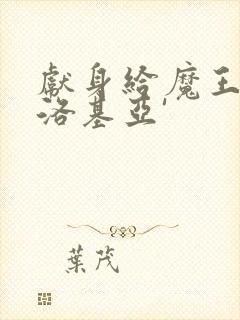 獻身給魔王
洛基亞'
葉茂